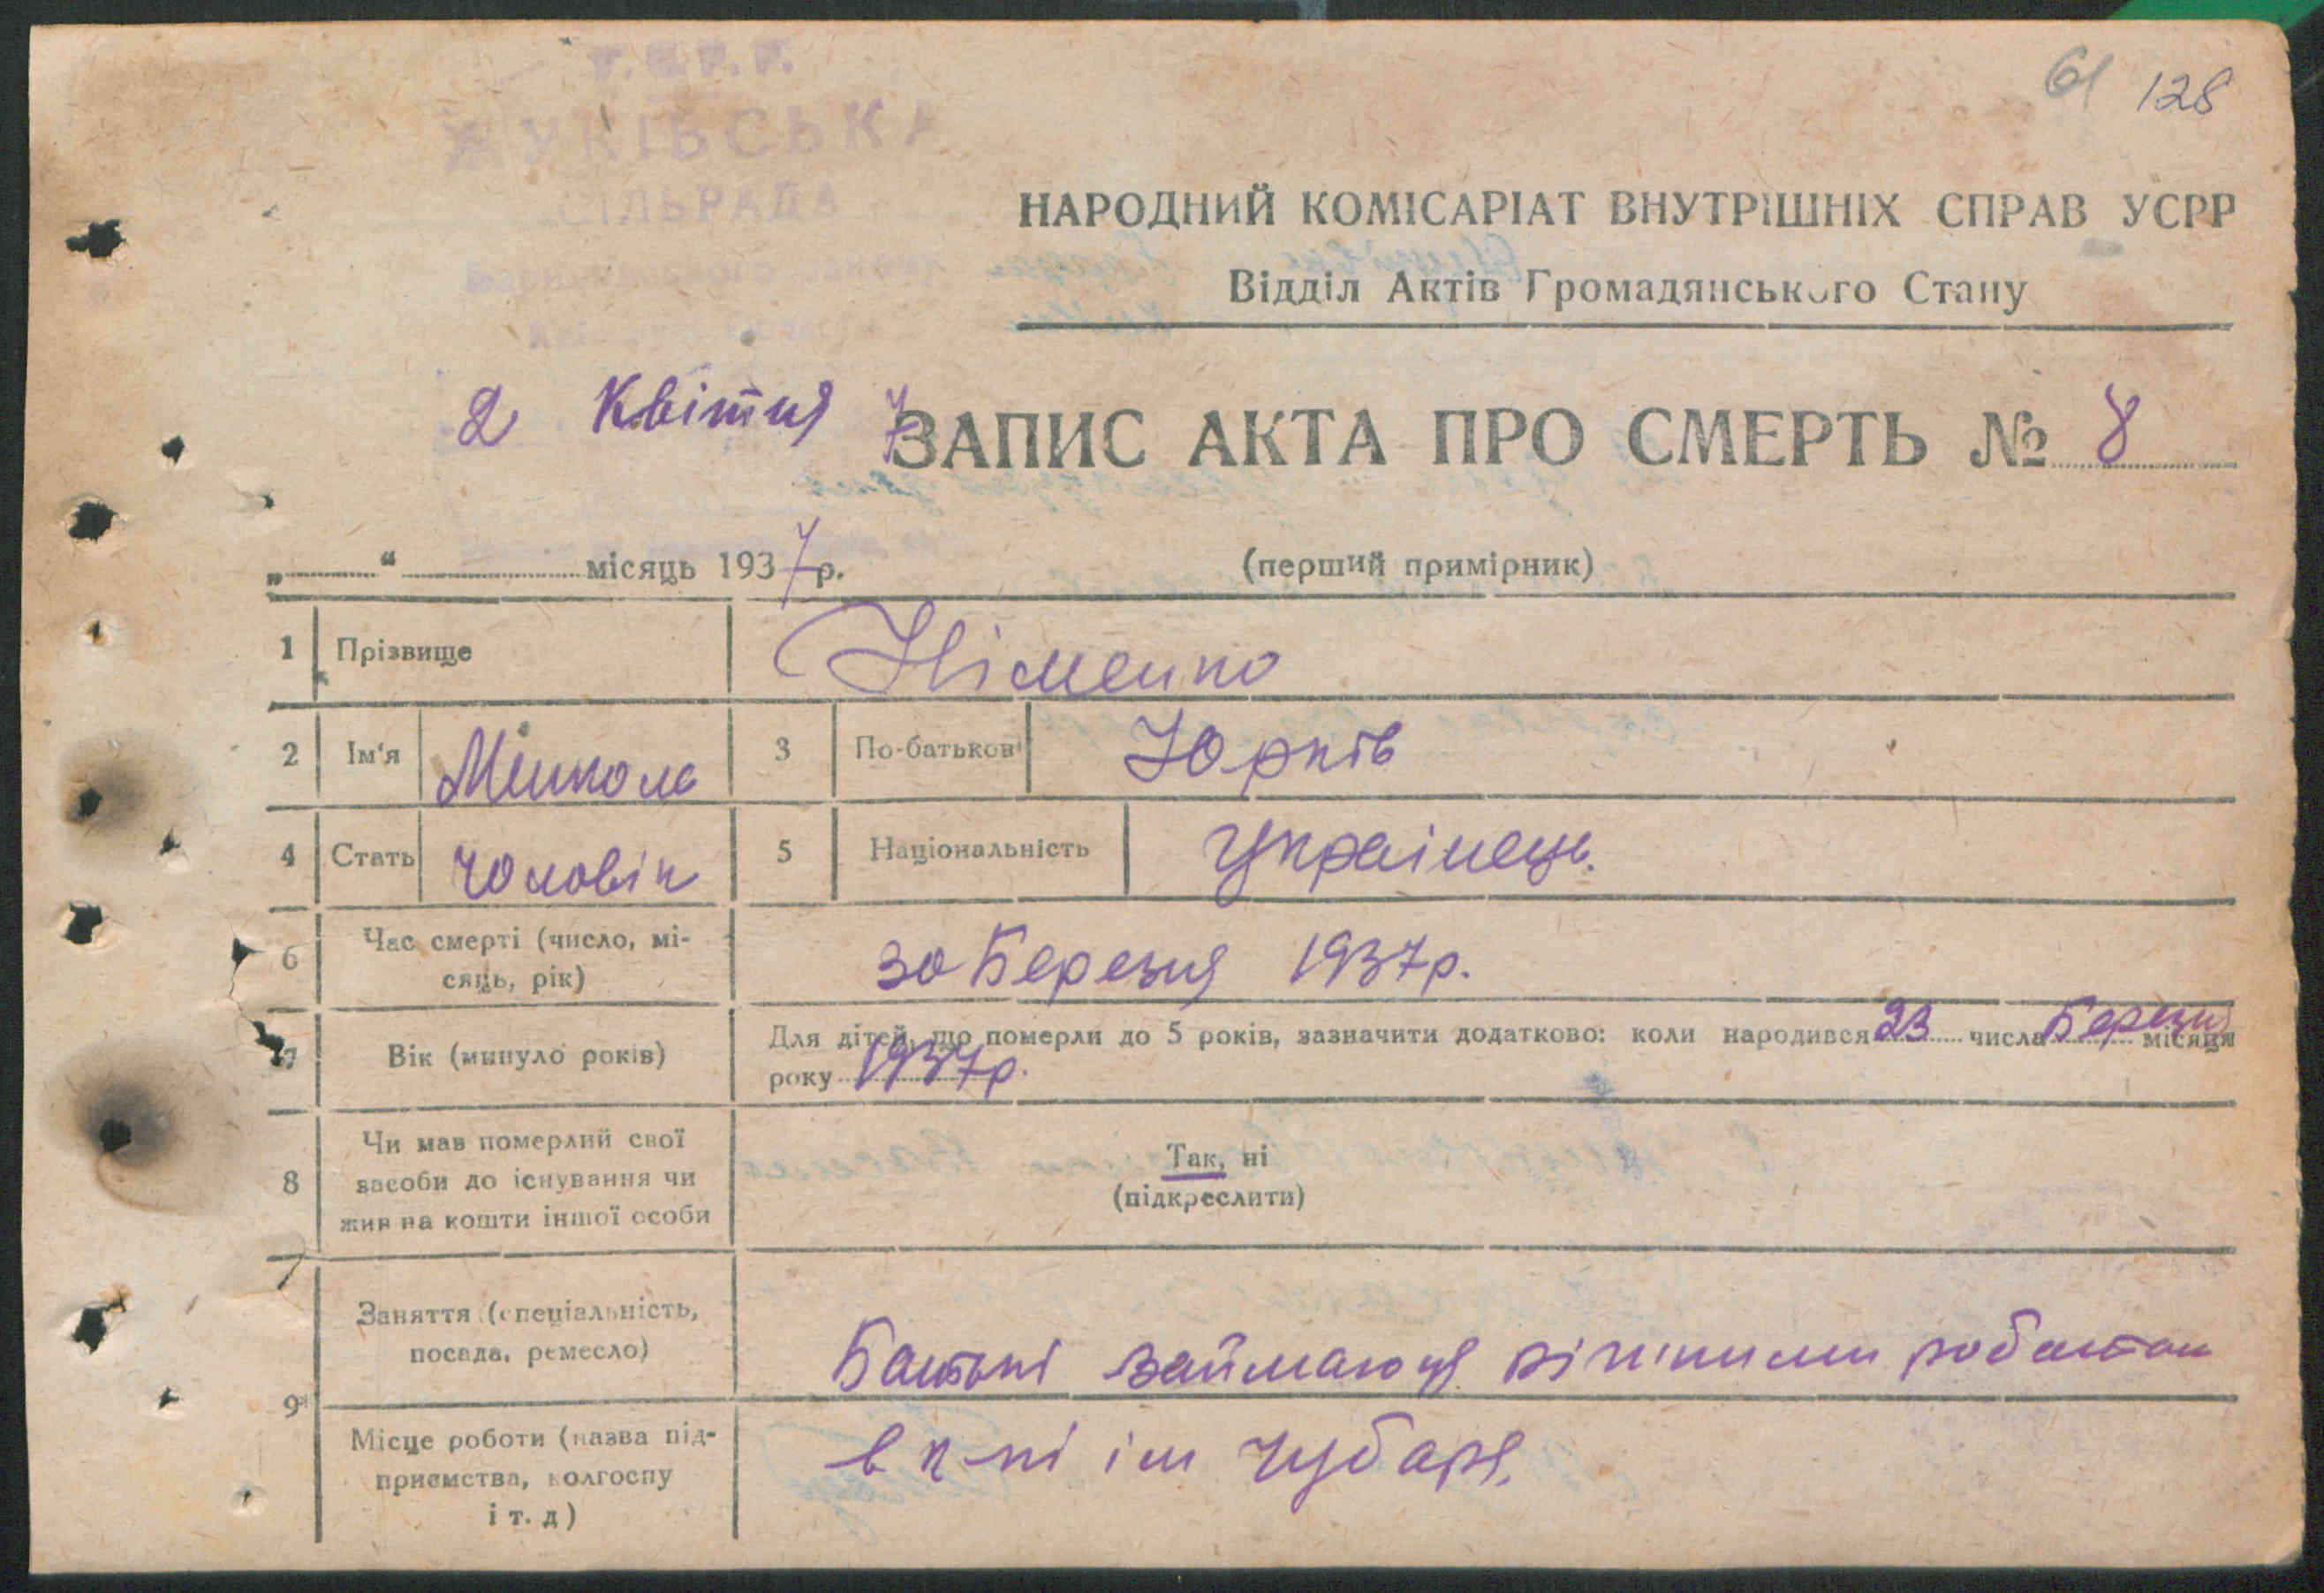 61 128
ЖУКІВСЬКА
СІЛЬРАДА
НАРОДНИЙ КОМІСАРІАТ ВНУТРІШНІХ СПРАВ УСРР
Відділ Актів Громадянського Стану
2 Квітня 7
ЗАПИС АКТА ПРО СМЕРТЬ № 8
„ “ місяць 1937 р.
(перший примірник)
1 Прізвище Німенко
2 Ім'я Микола 3 По-батькові Юрків
4 Стать Чоловік 5 Національність Українець.
6 Час смерті (число, мі-
сяць, рік) 30 Березня 1937р.
7 Вік (минуло років) Для дітей, що померли до 5 років, зазначити додатково: коли народився 23 числа Березня місяця
року 1937р.
8 Чи мав померлий свої
засоби до існування чи
жив на кошти іншої особи
Так, ні
(підкреслити)
9 Заняття (спеціальність,
посада, ремесло) Батьки займаюця різними роботам
Місце роботи (назва під-
приємства, колгоспу
і т. д) в к-пі ім Чубаря.